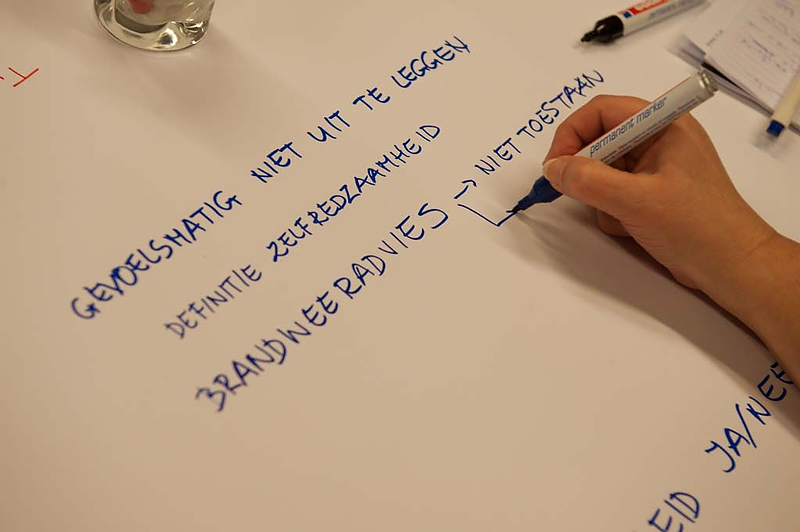 GEVOELSMATIG NIET UIT TE LEGGEN
DEFINITIE ZELFREDZAAMHEID
BRANDWEERADVIES → NIET TOESTAAN
permanent marker
EID JA/NEE